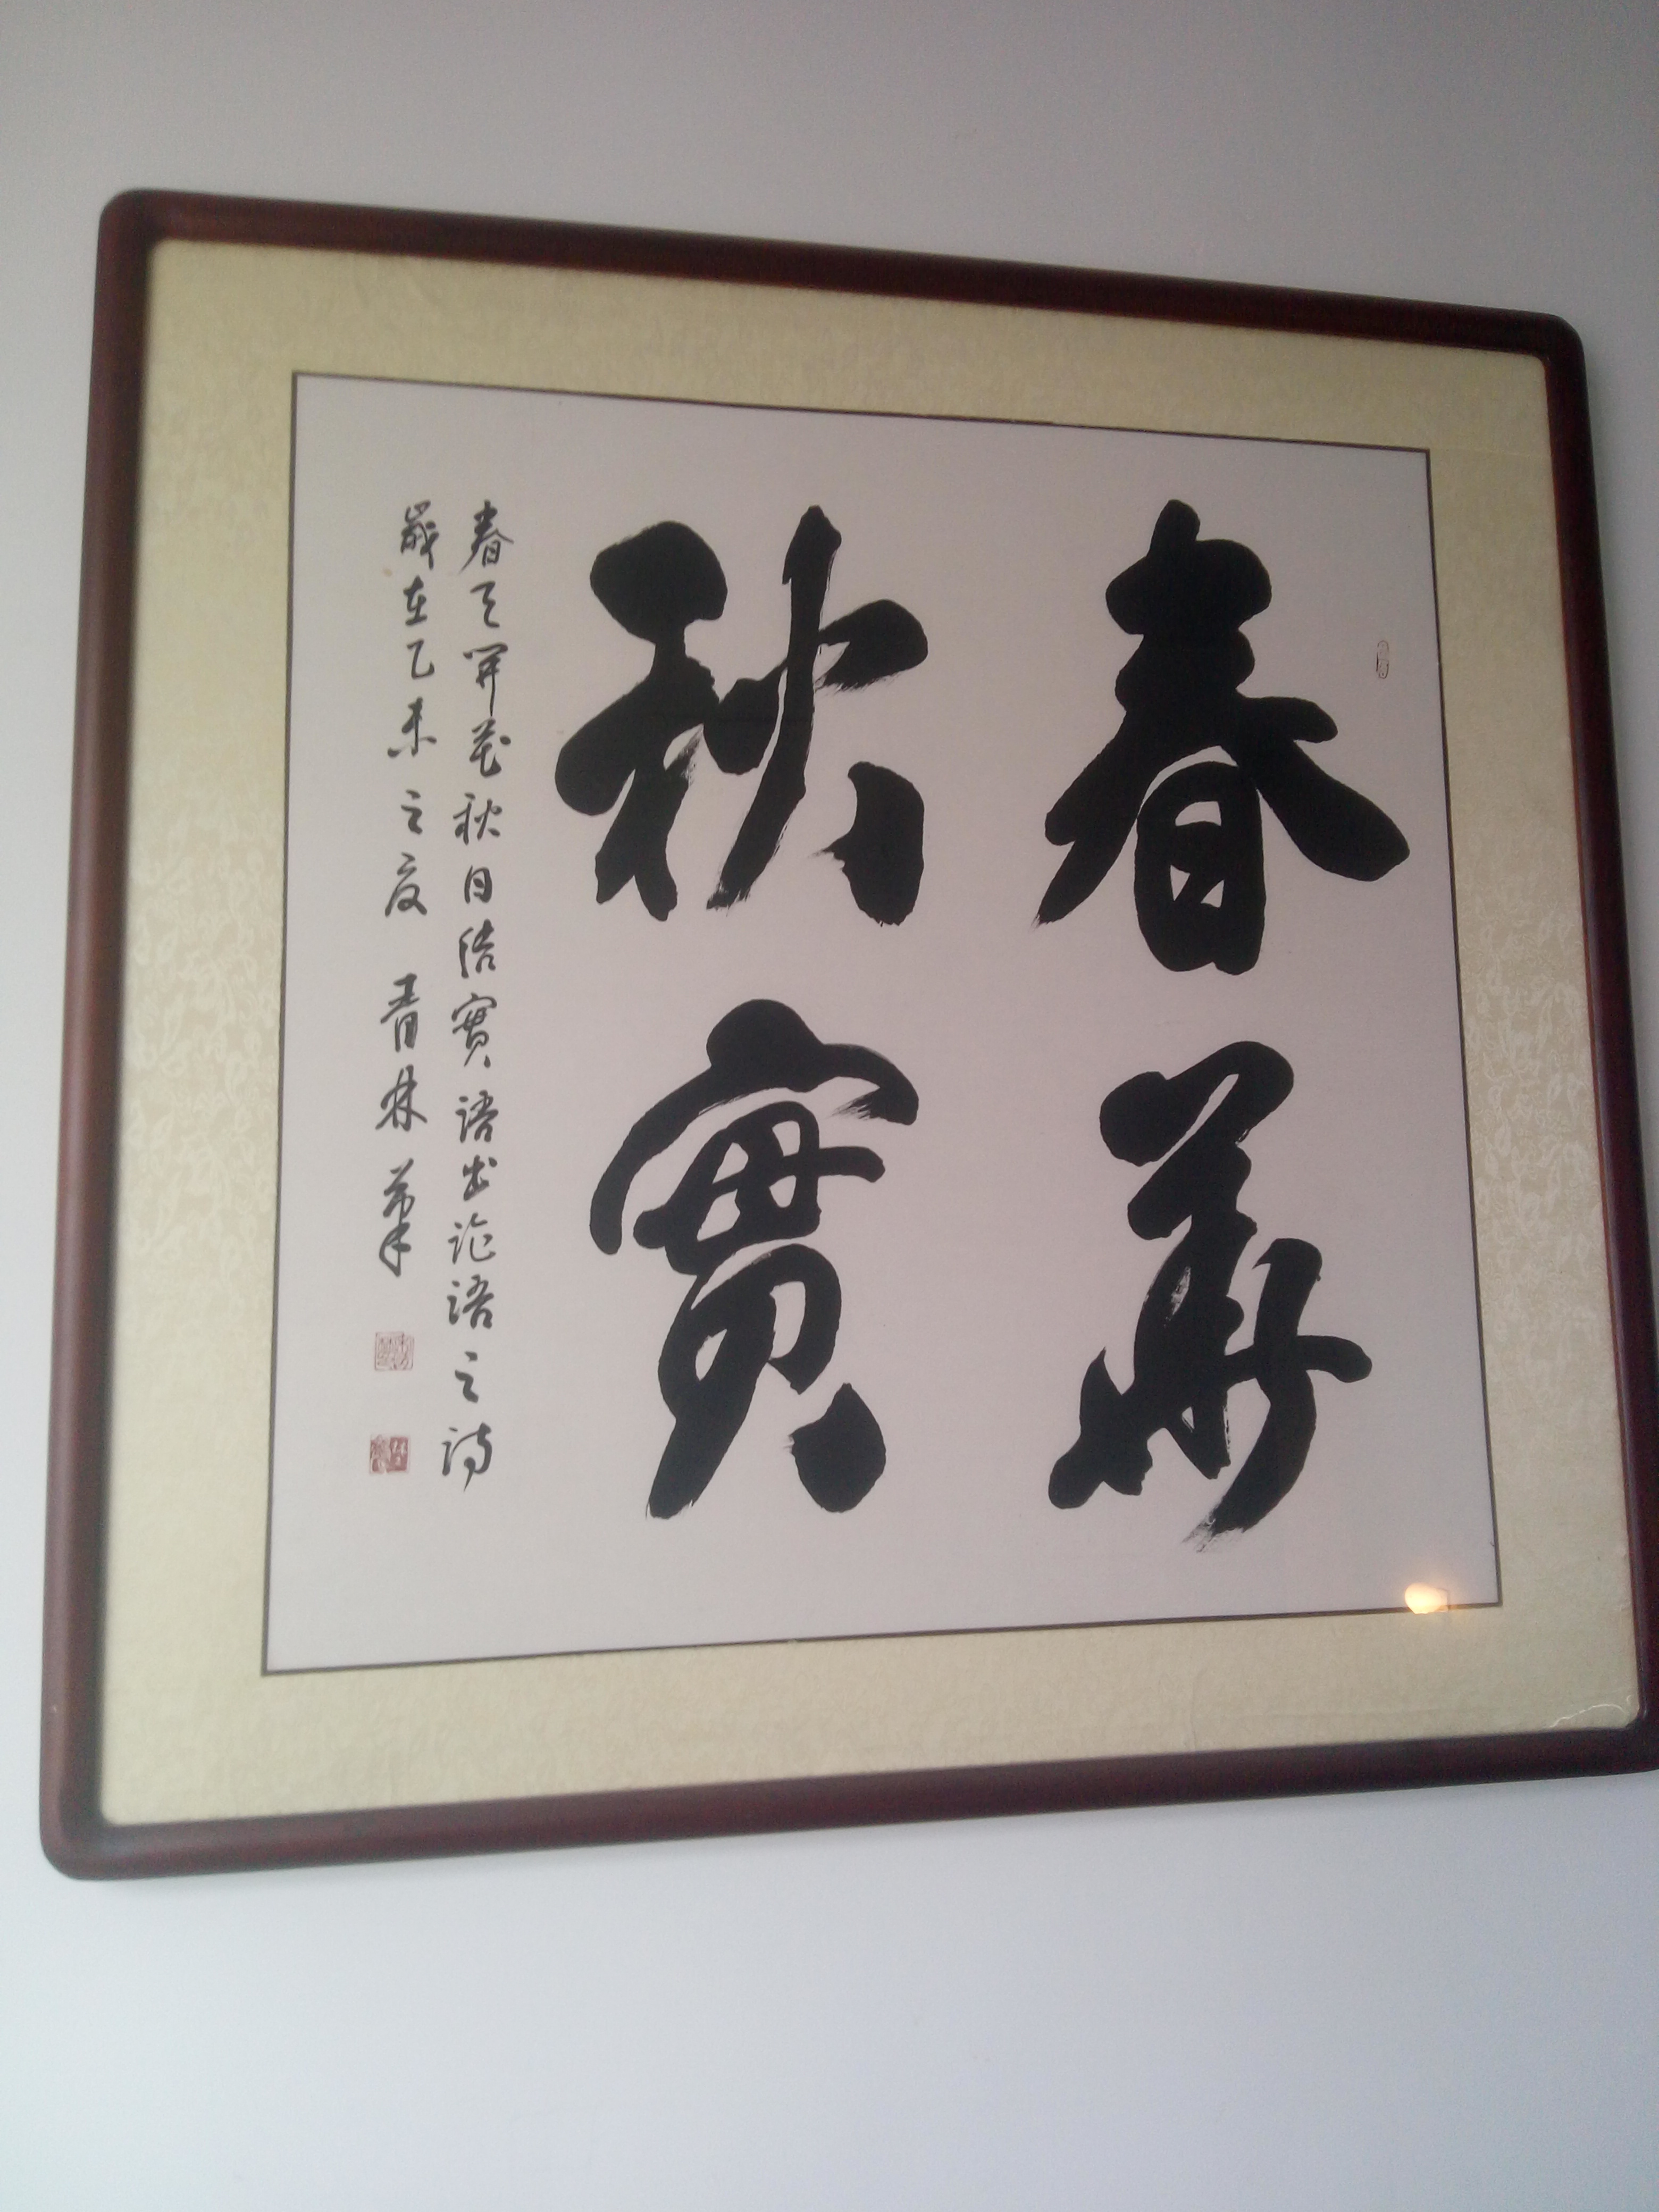 春華
秋實
春天開花秋日結實語出論語之詩
歲在乙未之夏 青林 筆